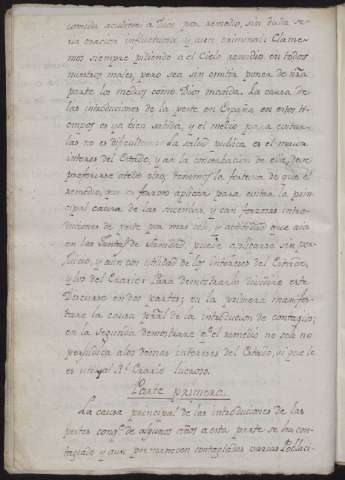 comida acudiera a Dios por remedio, sin duda se-
ria oracion infructuosa y quien criminal: Clame-
mos siempre pidiendo a el Cielo remedio en todos
nuestros males, pero sea sin omitir poner de nra
parte los medios como Dios manda. La causa de
las introduciones de la peste en España en estos ti-
empos es ya bien sabida, y el medio para evitar-
las no es dificultoso. La salud publica es el maior
interes del Estado, y aun la concentracion de ella, deve
preferirse a todo otro, tenemos la fortuna de que el
remedio, que es forzoso aplicar para evitar la prin-
cipal causa de las sucedidas, y tan forzosas intro-
duciones de peste por mas celo, y actividad que aia
en las Juntas de Sanidad, puede aplicarse sin per-
juicio, y aun con utilidad de los intereses del Estado,
y los del Erario: Para demostrarlo dividiré este
Discurso en dos partes; en la primera manifes-
taré la causa pral de la introducion de contagio;
en la segunda demostraré qe el remedio no solo no
perjudica a los demas intereses del Estado, si que le
es util, y al Rl Erario lucroso.
Parte primera.
La causa principal de las introduciones de las
pestes conqe de algunos años a esta parte se ha con-
tagiado y aun permanecen contagiadas varias Poblaci-